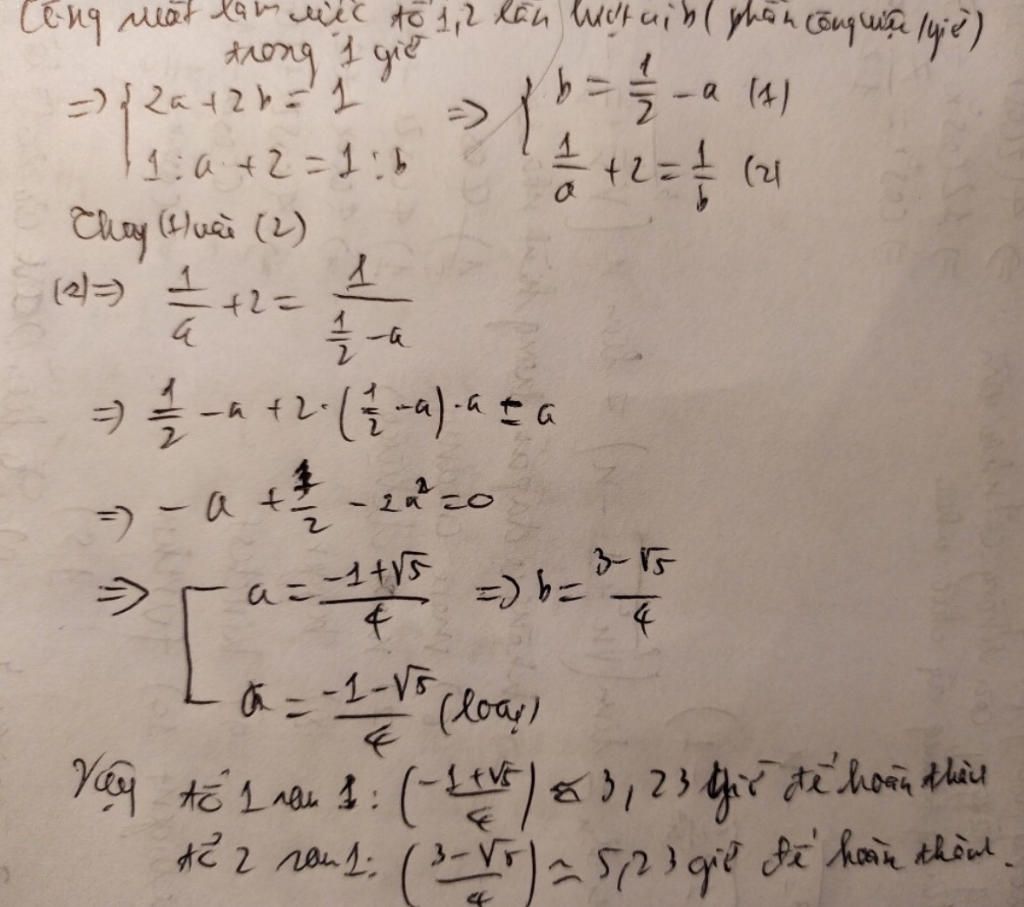 Công suất làm việc tổ 1,2 lần lượt a,b (phần công việc /giờ)
trong 1 giờ
=> { 2a + 2b = 1 => { b = 1/2 - a (1)
1 : a + 2 = 1 : b 1/a + 2 = 1/b (2)
Thay (1) vào (2)
(2) => 1/a + 2 = 1/(1/2 - a)
=> 1/2 - a + 2·(1/2 - a)·a = a
=> - a + 1/2 - 2a² = 0
=> [ a = (-1+√5)/4 => b = (3-√5)/4
a = (-1-√5)/4 (loại)
Vậy tổ 1 sau 1 : ((-1+√5)/4) ≈ 3,23 giờ để hoàn thành
tổ 2 sau 1 : ((3-√5)/4) ≈ 5,23 giờ để hoàn thành.